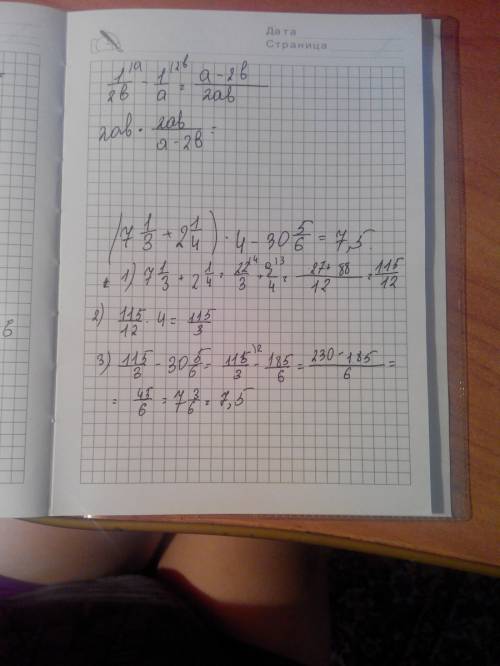 Дата
Страница
1/2в ^(а - 1/а ^(2в = а - 2в/2ав
2ав · 2ав/а - 2в =
(7 1/3 + 2 1/4) · 4 - 30 5/6 = 7,5
1) 7 1/3 + 2 1/4 = 22/3 ^(4 + 9/4 ^(3 = 27 + 88/12 = 115/12
2) 115/12 · 4 = 115/3
3) 115/3 - 30 5/6 = 115/3 ^(2 - 185/6 = 230 - 185/6 =
= 45/6 = 7 3/6 = 7,5